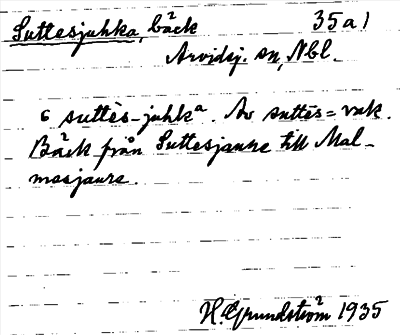 Suttesjuhka, bäck 35a1
Arvidsj. sn, Nbl.
6 suttès-juhkᵃ. Av suttēs = vak.
Bäck från Suttesjaure till Mal-
mesjaure.
H. Grundström 1935